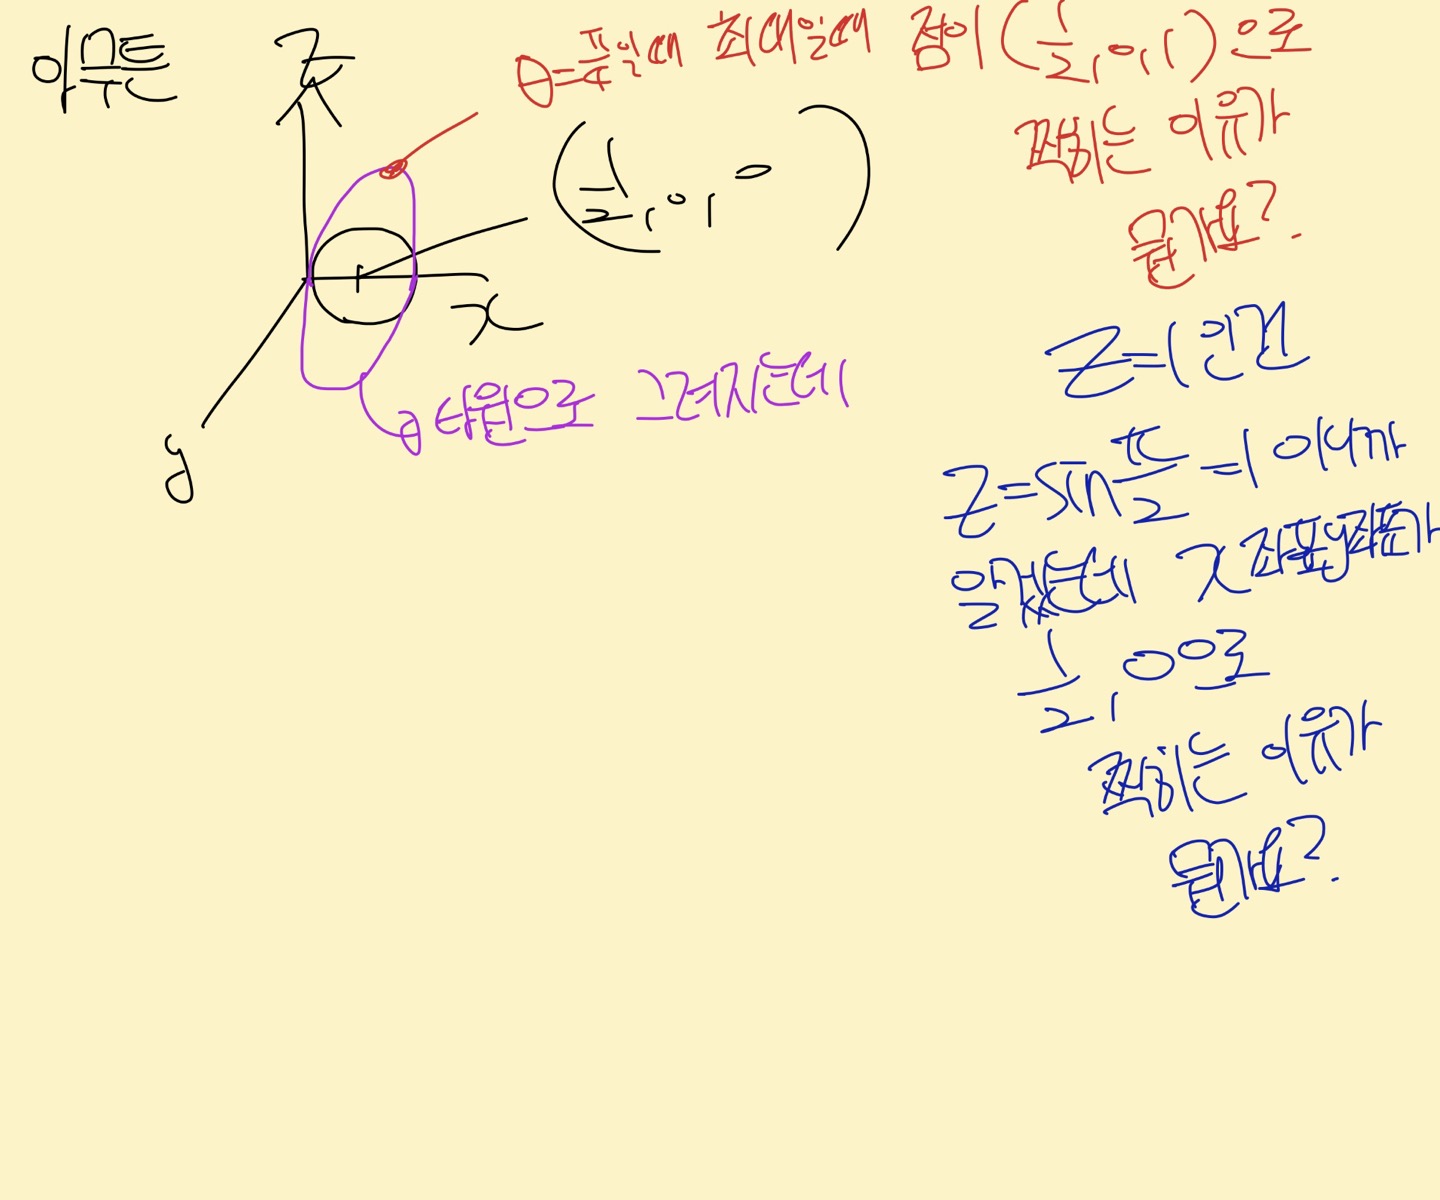 아무튼
z
θ=π/4일때 최대일때 점이 (1/2, 0, 1)으로
찍히는 이유가
뭔가요?
(1/2, 0, 0)
x
y
타원으로 그려지는데
z=1인건
z=sin π/2=1이니까
알겠는데 x좌표y좌표가
1/2, 0으로
찍히는 이유가
뭔가요?